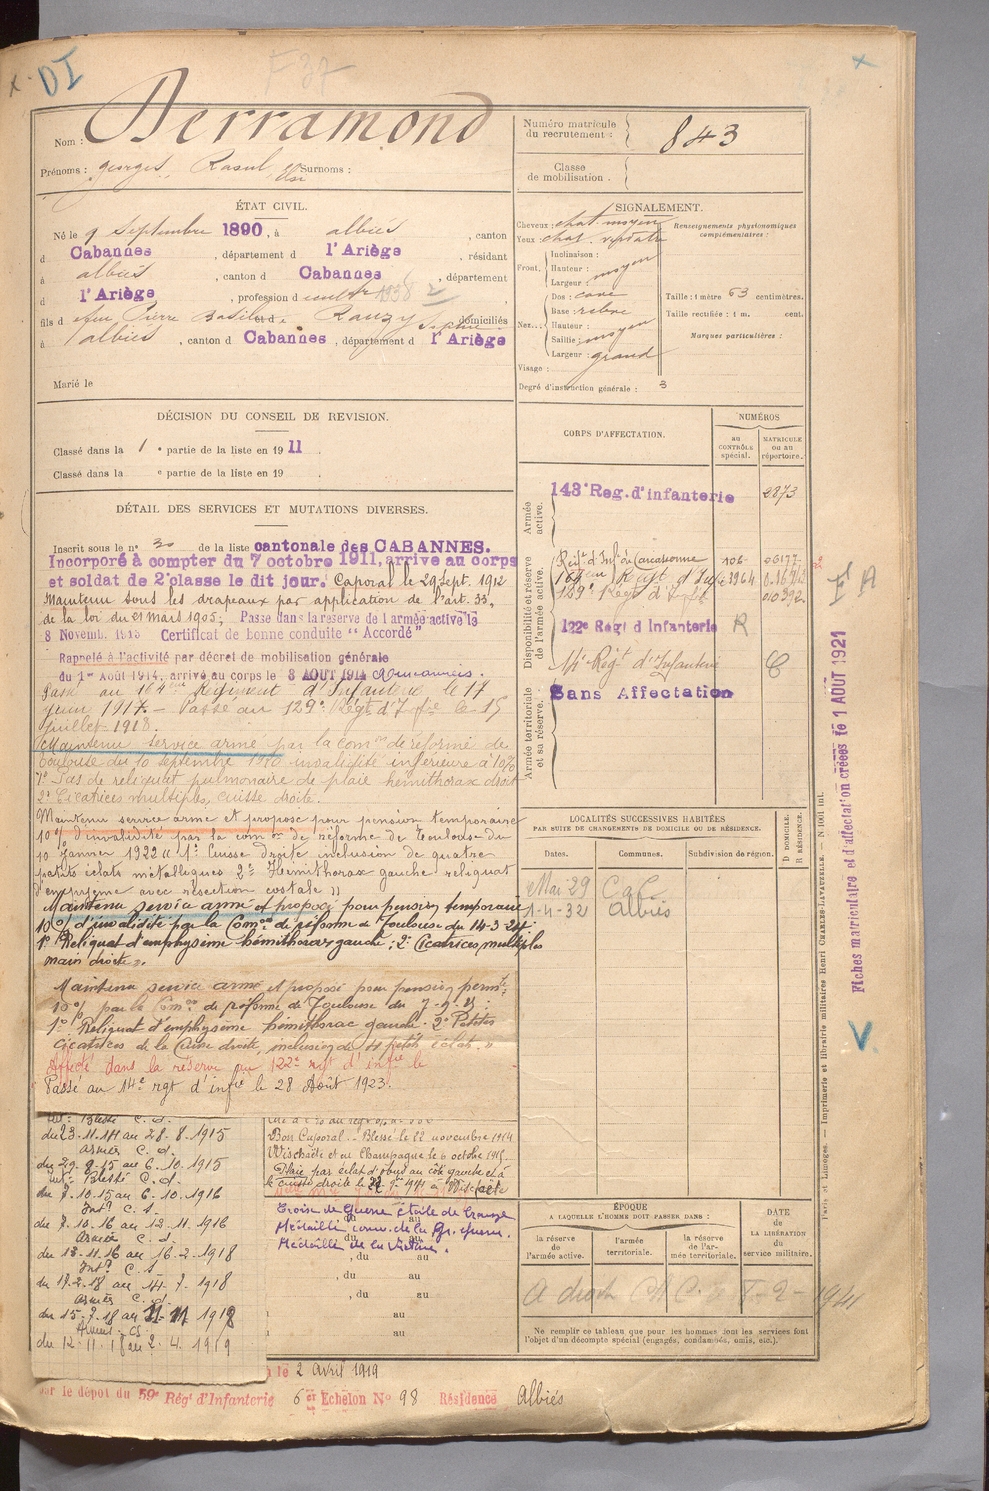 DI
F 37
Nom : Derramond
Prénoms : Georges, Raoul, Surnoms :
Numéro matricule du recrutement : 843
Classe de mobilisation .
ÉTAT CIVIL.
Né le 9 Septembre 1890, à albiès, canton
d Cabannes, département d l'Ariège, résidant
à albiès, canton d Cabannes, département
d l'Ariège, profession d cultr 1938
fils d feu Pierre Basile et d Rauzy Sophie domiciliés
à albiès, canton d Cabannes, département d l'Ariège
Marié le
SIGNALEMENT.
Cheveux : chat. moyen
Yeux chat.
Renseignements physionomiques complémentaires :
Front. Inclinaison :
Hauteur :
Largeur : moyen
Nez... Dos : cave
Base :
Hauteur :
Saillie : moyen
Largeur : grand
Visage :
Taille : 1 mètre 63 centimètres.
Taille rectifiée : 1 m. cent.
Marques particulières :
Degré d'instruction générale : 3
DÉCISION DU CONSEIL DE REVISION.
Classé dans la 1 e partie de la liste en 1911.
Classé dans la e partie de la liste en 19 .
CORPS D'AFFECTATION.
NUMÉROS
au CONTRÔLE spécial.
MATRICULE ou au répertoire.
Armée active.
143e Reg. d'infanterie 2873
Disponibilité et réserve de l'armée active.
Régt d'Infie de Carcassonne 106 06177
164 Regt d'Infie
129e Régt d'Infie 010392
122e Regt d Infanterie R
14e Régt d'Infanterie
Armée territoriale et sa réserve.
Sans Affectation
DÉTAIL DES SERVICES ET MUTATIONS DIVERSES.
Inscrit sous le n° 30 de la liste cantonale des CABANNES.
Incorporé à compter du 7 octobre 1911, arrivé au corps
et soldat de 2e classe le dit jour. Caporal le 29 Sept. 1912
Maintenu sous les drapeaux par application de l'art. 33,
de la loi du 21 Mars 1905; Passé dans la réserve de l'armée active le
8 Novemb. 1913 Certificat de bonne conduite "Accordé"
Rappelé à l'activité par décret de mobilisation générale
du 1er Août 1914, arrivé au corps le 3 AOUT 1914
Passé au 164eme Régiment d'Infanterie le 17
juin 1917. - Passé au 129e Régt d'Infie le 15
Juillet 1918.
Maintenu service armé par la comon de réforme de
Toulouse du 10 septembre 1920 invalidité inférieure à 10%
1° Pas de reliquat pulmonaire de plaie hémithorax droit
2° Cicatrices multiples, cuisse droite.
Maintenu service armé et proposé pour pension temporaire
10% d'invalidité par la comon de réforme de Toulouse du
10 Janvier 1922 « 1° Cuisse droite inclusion de quatre
petits éclats métalliques 2° Hémithorax gauche reliquat
d'empyème avec résection costale »
Maintenu service armé et proposé pour pension temporaire
10% d'invalidité par la Comon de réforme de Toulouse du 14-3-24
1° Reliquat d'emphysème hémithorax gauche ; 2° Cicatrices multiples
main droite ».
Maintenu service armé et proposé pour pension permte
10% par la Comon de réforme de Toulouse du
1° Reliquat d'emphysème hémithorax gauche. 2° Petites
cicatrices de la Cuisse droite, inclusion de 4 petits éclats. »
Affecté dans la réserve au 122e rgt d'infie le
Passé au 14e rgt d'infie le 28 Août 1923.
LOCALITÉS SUCCESSIVES HABITÉES
PAR SUITE DE CHANGEMENTS DE DOMICILE OU DE RÉSIDENCE.
Dates. Communes. Subdivision de région. D DOMICILE. R RÉSIDENCE.
Mai 29
1-4-32 Albiès
Intr Blessé C. d.
du 23-11-14 au 28-8-1915
Armées C. d.
du 29-8-15 au 6-10-1915
Intr Blessé C. d.
du 7-10-15 au 6-10-1916
Intr C. s.
du 7-10-16 au 12-11-1916
Armée C. d.
du 13-11-16 au 16-2-1918
Intr C. s.
du 17-2-18 au 14-7-1918
Armées C. d.
du 15-7-18 au 11-11-1918
Armées CS
du 12-11-18 au 2-4-1919
Bon Caporal. - Blessé le 22 novembre 1914
Wischaëte et en Champagne le 6 octobre 1915.
Plaie par éclat d'obus au côté gauche et à
Croix de Guerre étoile de bronze
Médaille com. de la Gr. guerre.
Médaille de la Victoire.
, du au
, du au
, du au
au
au
ÉPOQUE
A LAQUELLE L'HOMME DOIT PASSER DANS :
la réserve de l'armée active.
l'armée territoriale.
la réserve de l'armée territoriale.
DATE de LA LIBÉRATION du service militaire.
Ne remplir ce tableau que pour les hommes dont les services font
l'objet d'un décompte spécial (engagés, condamnés, omis, etc.).
le 2 Avril 1919
par le dépôt du 59e Régt d'Infanterie 6er Echelon N° 98 Résidence Albiès
Fiches matriculaire et d'affectation créées le 1 AOUT 1921
Paris et Limoges. — Imprimerie et librairie militaires Henri CHARLES-LAVAUZELLE.
V.